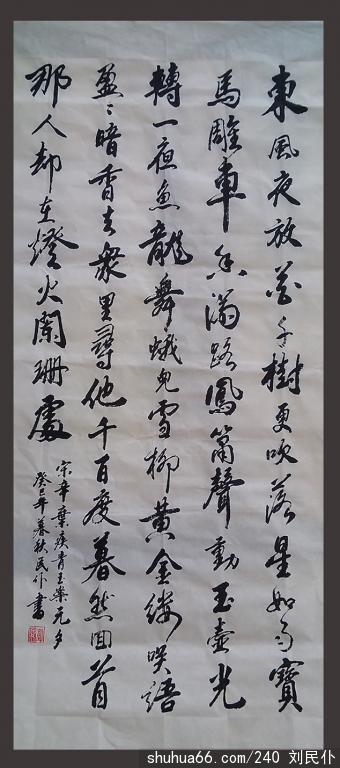 東風夜放花千樹更吹落星如雨寶
馬雕車香滿路鳳簫聲動玉壺光
轉一夜魚龍舞蛾兒雪柳黃金縷笑語
盈〻暗香去衆里尋他千百度暮然回首
那人却在燈火闌珊處
宋辛棄疾青玉案元夕
癸巳年暮秋民仆書
shuhua66.com/240 刘民仆